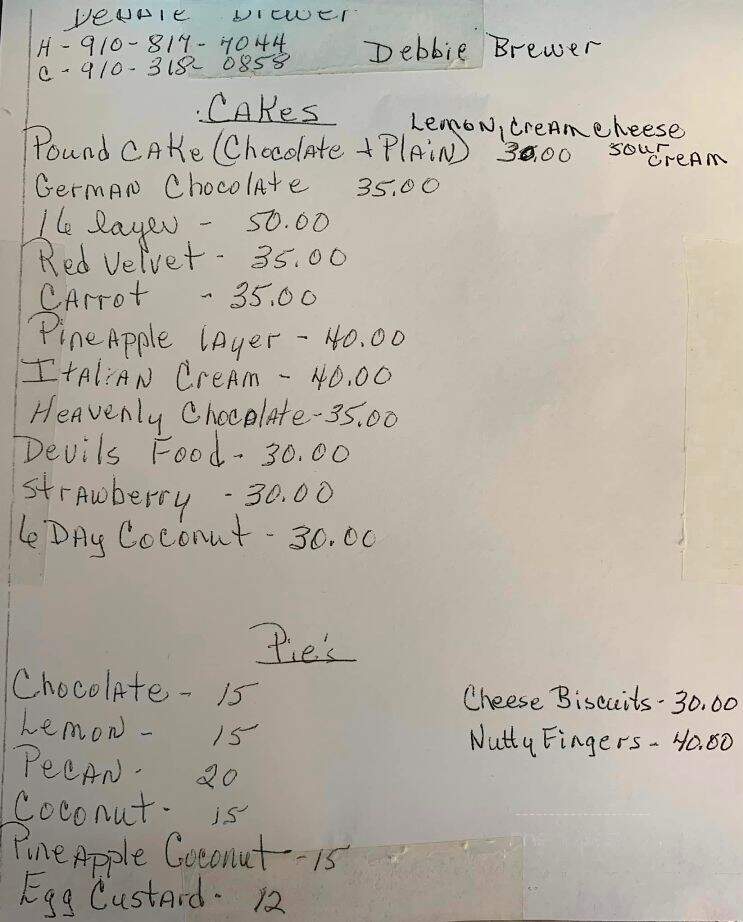 Debbie Brewer
H - 910-817-7044
C - 910-318-0858
Debbie Brewer
CAKes
Lemon, Cream cheese
Pound CAKe (Chocolate + PlAiN) 30.00 sour cream
German Chocolate 35.00
16 layer - 50.00
Red Velvet - 35.00
CArrot - 35.00
PineApple lAyer - 40.00
ItAliAN CreAm - 40.00
HeAvenly ChocolAte - 35.00
Devils Food - 30.00
StrAwberry - 30.00
6 DAy Coconut - 30.00
Pie's
ChocolAte - 15
Lemon - 15
PecAN - 20
Coconut - 15
PineApple Coconut - 15
Egg Custard - 12
Cheese Biscuits - 30.00
Nutty Fingers - 40.00